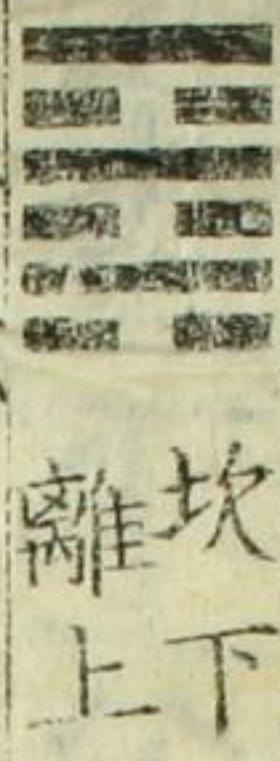 坎下
離上